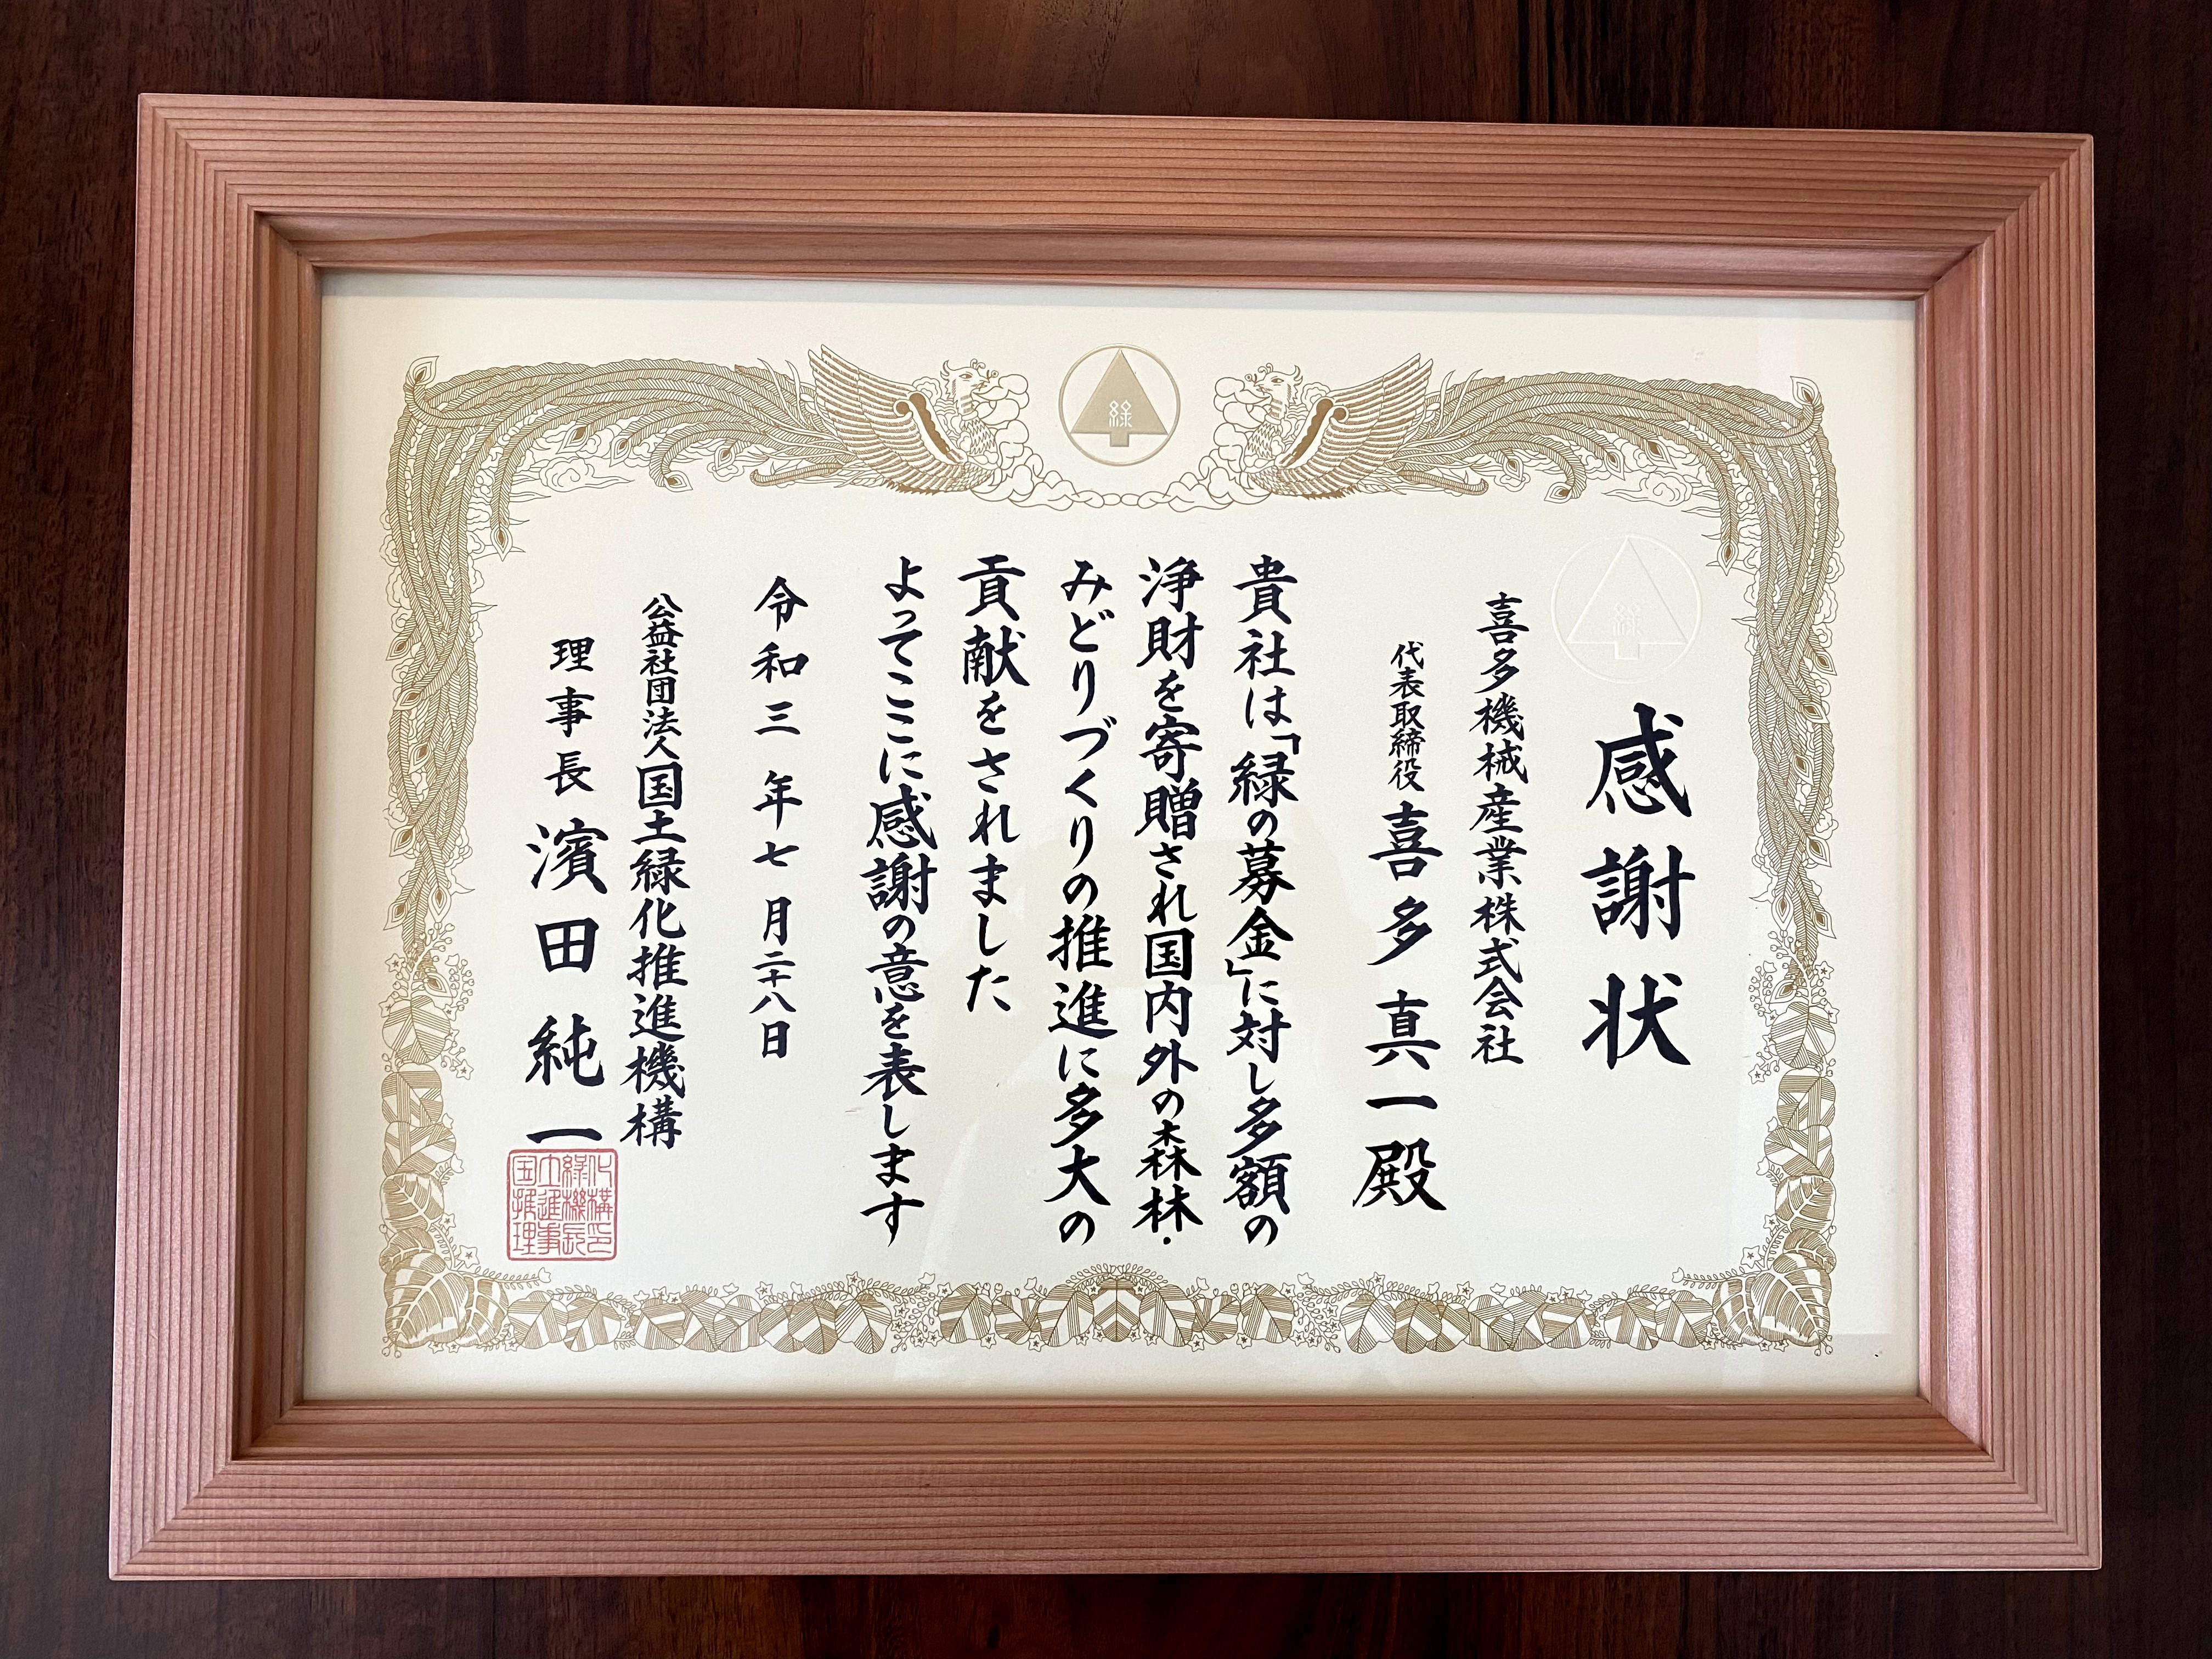 緑
緑
感謝状
喜多機械産業株式会社
代表取締役 喜多真一殿
貴社は「緑の募金」に対し多額の
浄財を寄贈され国内外の森林・
みどりづくりの推進に多大の
貢献をされました
よってここに感謝の意を表します
令和三年七月二十八日
公益社団法人国土緑化推進機構
理事長 濱田純一
国土緑化
推進機構
理事長印